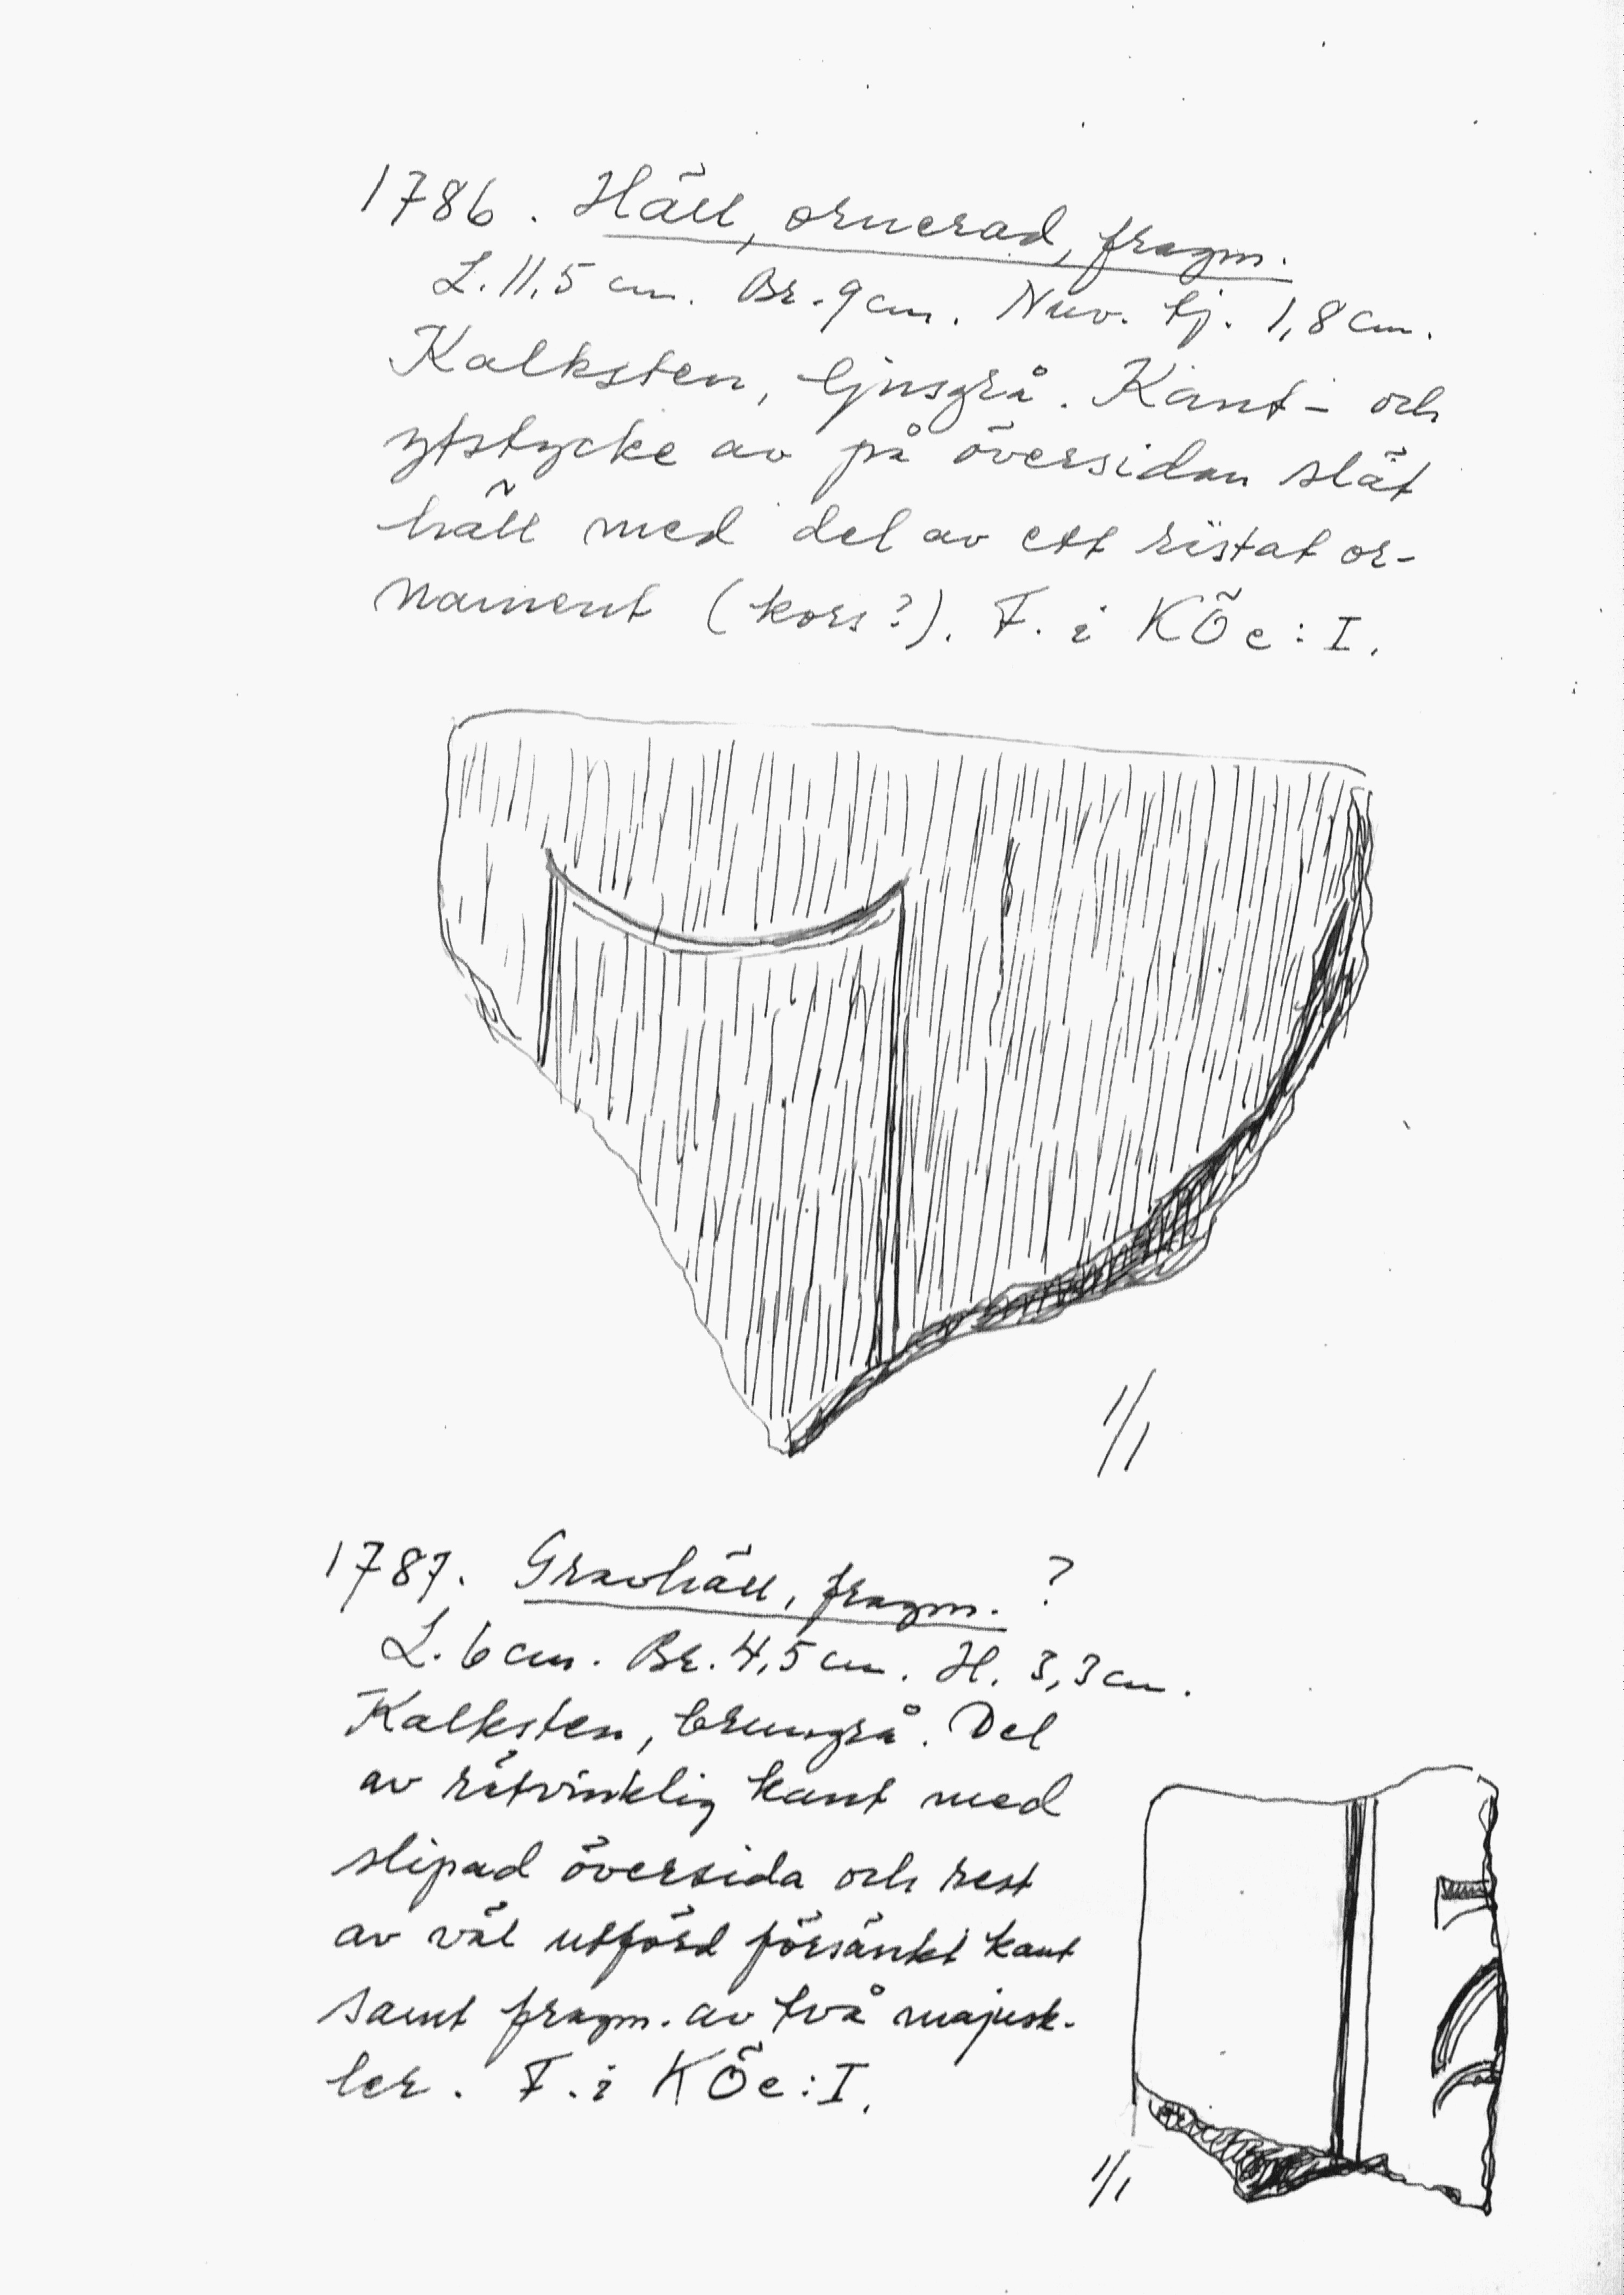 1786. Häll, ornerad, fragm.
L. 11,5 cm. Br. 9 cm. Nuv. tj. 1,8 cm.
Kalksten, ljusgrå. Kant- och
ytstycke av på översidan slät
häll med del av ett ristat or-
nament (kors?). F. i KÖe: I.
1/1
1787. Gravhäll, fragm. ?
L. 6 cm. Br. 4,5 cm. H. 3,3 cm.
Kalksten, brungrå. Del
av rätvinklig kant med
slipad översida och rest
av väl utförd försänkt kant
samt fragm. av två majusk-
ler. F. i KÖe: I.
1/1